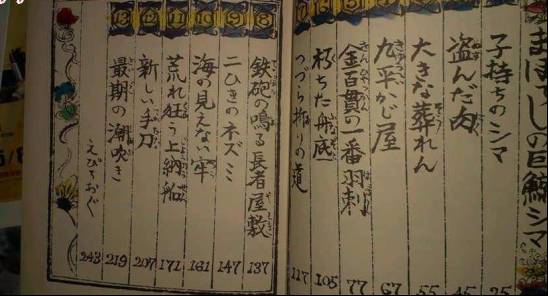 まぼろしの巨鯨シマ
子持ちのシマ 25
盗んだ肉 45
大きな葬れん 55
九平かじ屋 67
金百貫の一番羽刺 77
朽ちた舟底 105
つづら折りの道 117
8 鉄砲の鳴る長者屋敷 137
9 二ひきのネズミ 147
10 海の見えない牢 161
11 荒れ狂う上納船 171
12 新しい手刀 207
13 最期の潮吹き 219
えぴろおぐ 243